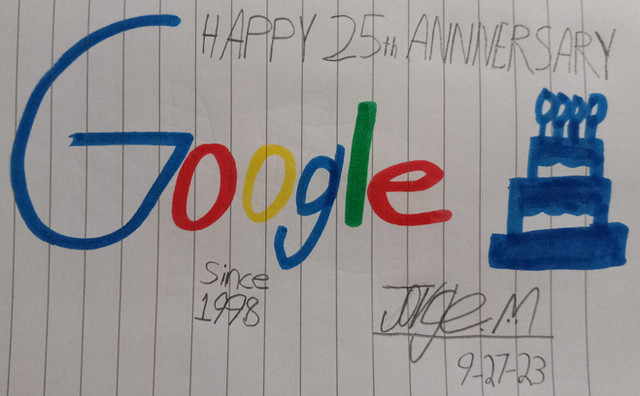 HAPPY 25th ANNIVERSARY
Google
Since
1998
Jorge.M
9-27-23